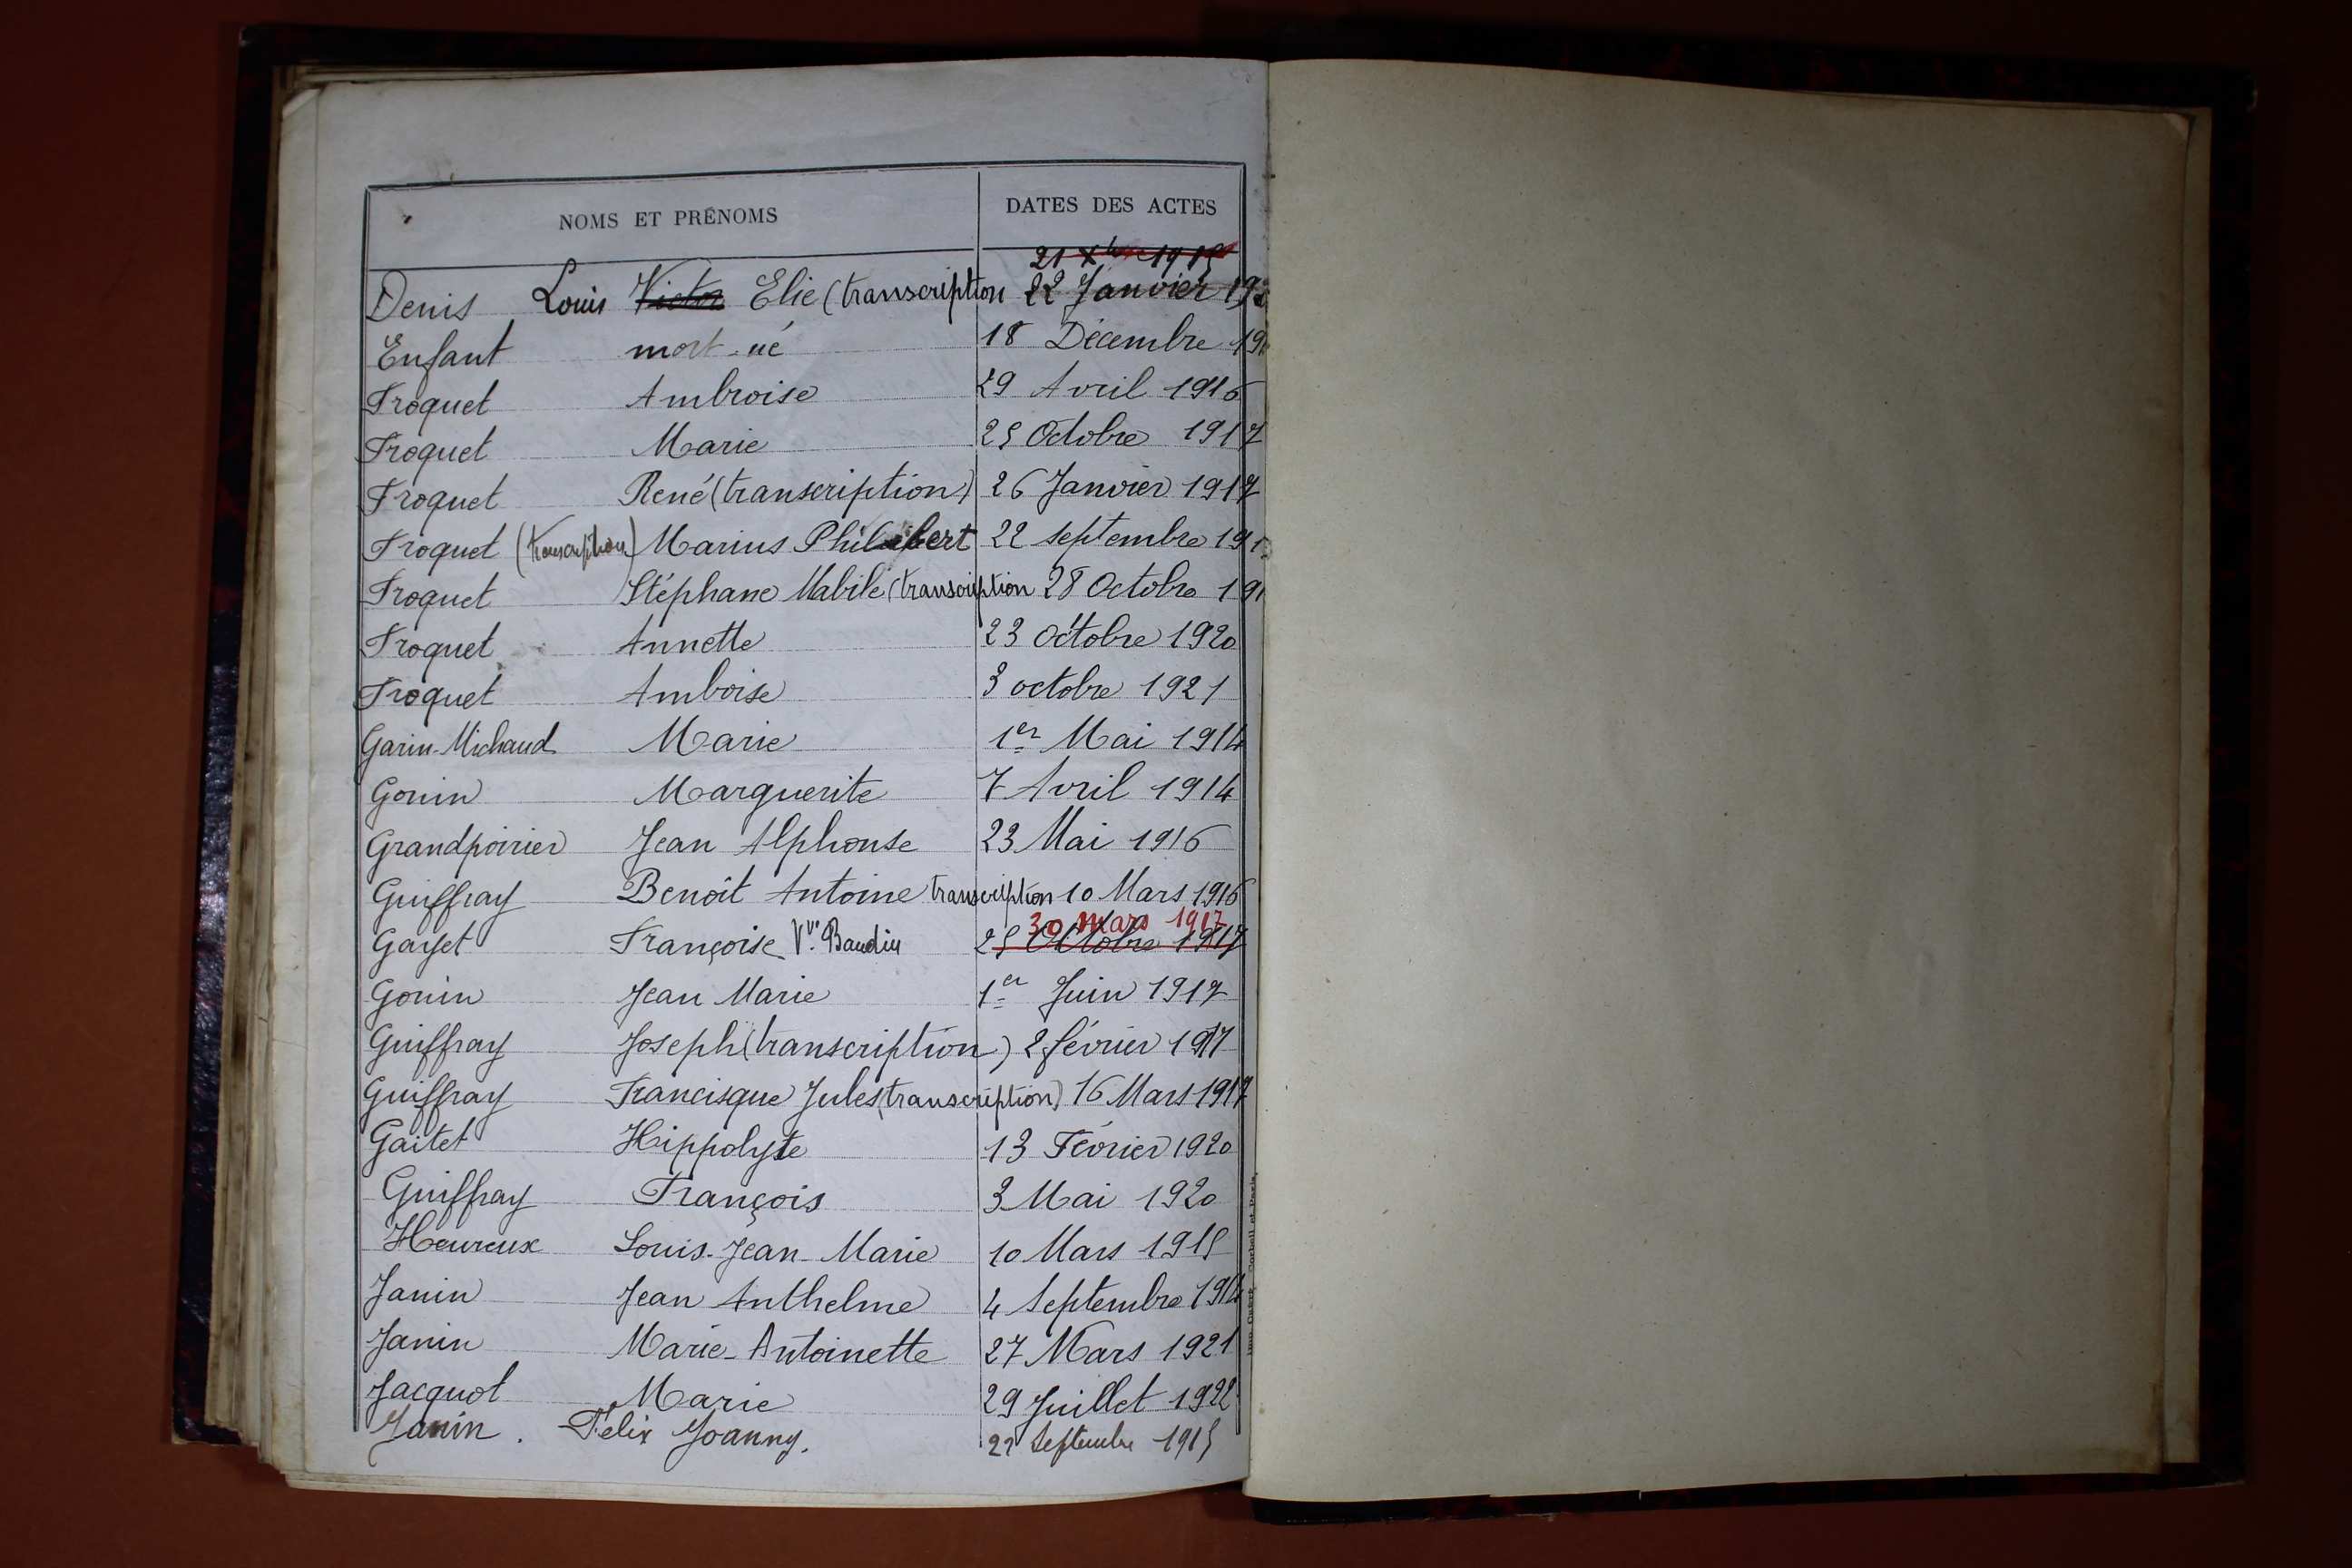 NOMS ET PRÉNOMS DATES DES ACTES
21 Xbre 1915
Denis Louis Victor Elie (transcription 22 Janvier 192
Enfant mort-né 18 Décembre 19
Froquet Ambroise 29 Avril 1916
Froquet Marie 25 Octobre 1917
Froquet René (transcription) 26 Janvier 1917
Froquet (transcription) Marius Philibert 22 septembre 191
Froquet Stéphane Mabile (transcription 28 Octobre 191
Froquet Annette 23 Octobre 1920
Froquet Amboise 3 octobre 1921
Garin-Michaud Marie 1er Mai 1914
Gonin Marguerite 7 Avril 1914
Grandpoirier Jean Alphonse 23 Mai 1916
Guiffray Benoît Antoine transcription 10 Mars 1916
30 Mars 1917
Gayet Françoise Vve Baudin 25 Octobre 1917
Gonin Jean Marie 1er Juin 1917
Guiffray Joseph (transcription) 2 février 1917
Guiffray Francisque Jules (transcription) 16 Mars 1917
Gaitet Hippolyte 13 Février 1920
Guiffray François 3 Mai 1920
Heureux Louis-Jean-Marie 10 Mars 1915
Janin Jean Anthelme 4 Septembre 1914
Janin Marie-Antoinette 27 Mars 1921
Jacquot Marie 29 Juillet 1922
Janin. Félix Joanny. 22 Septembre 1915